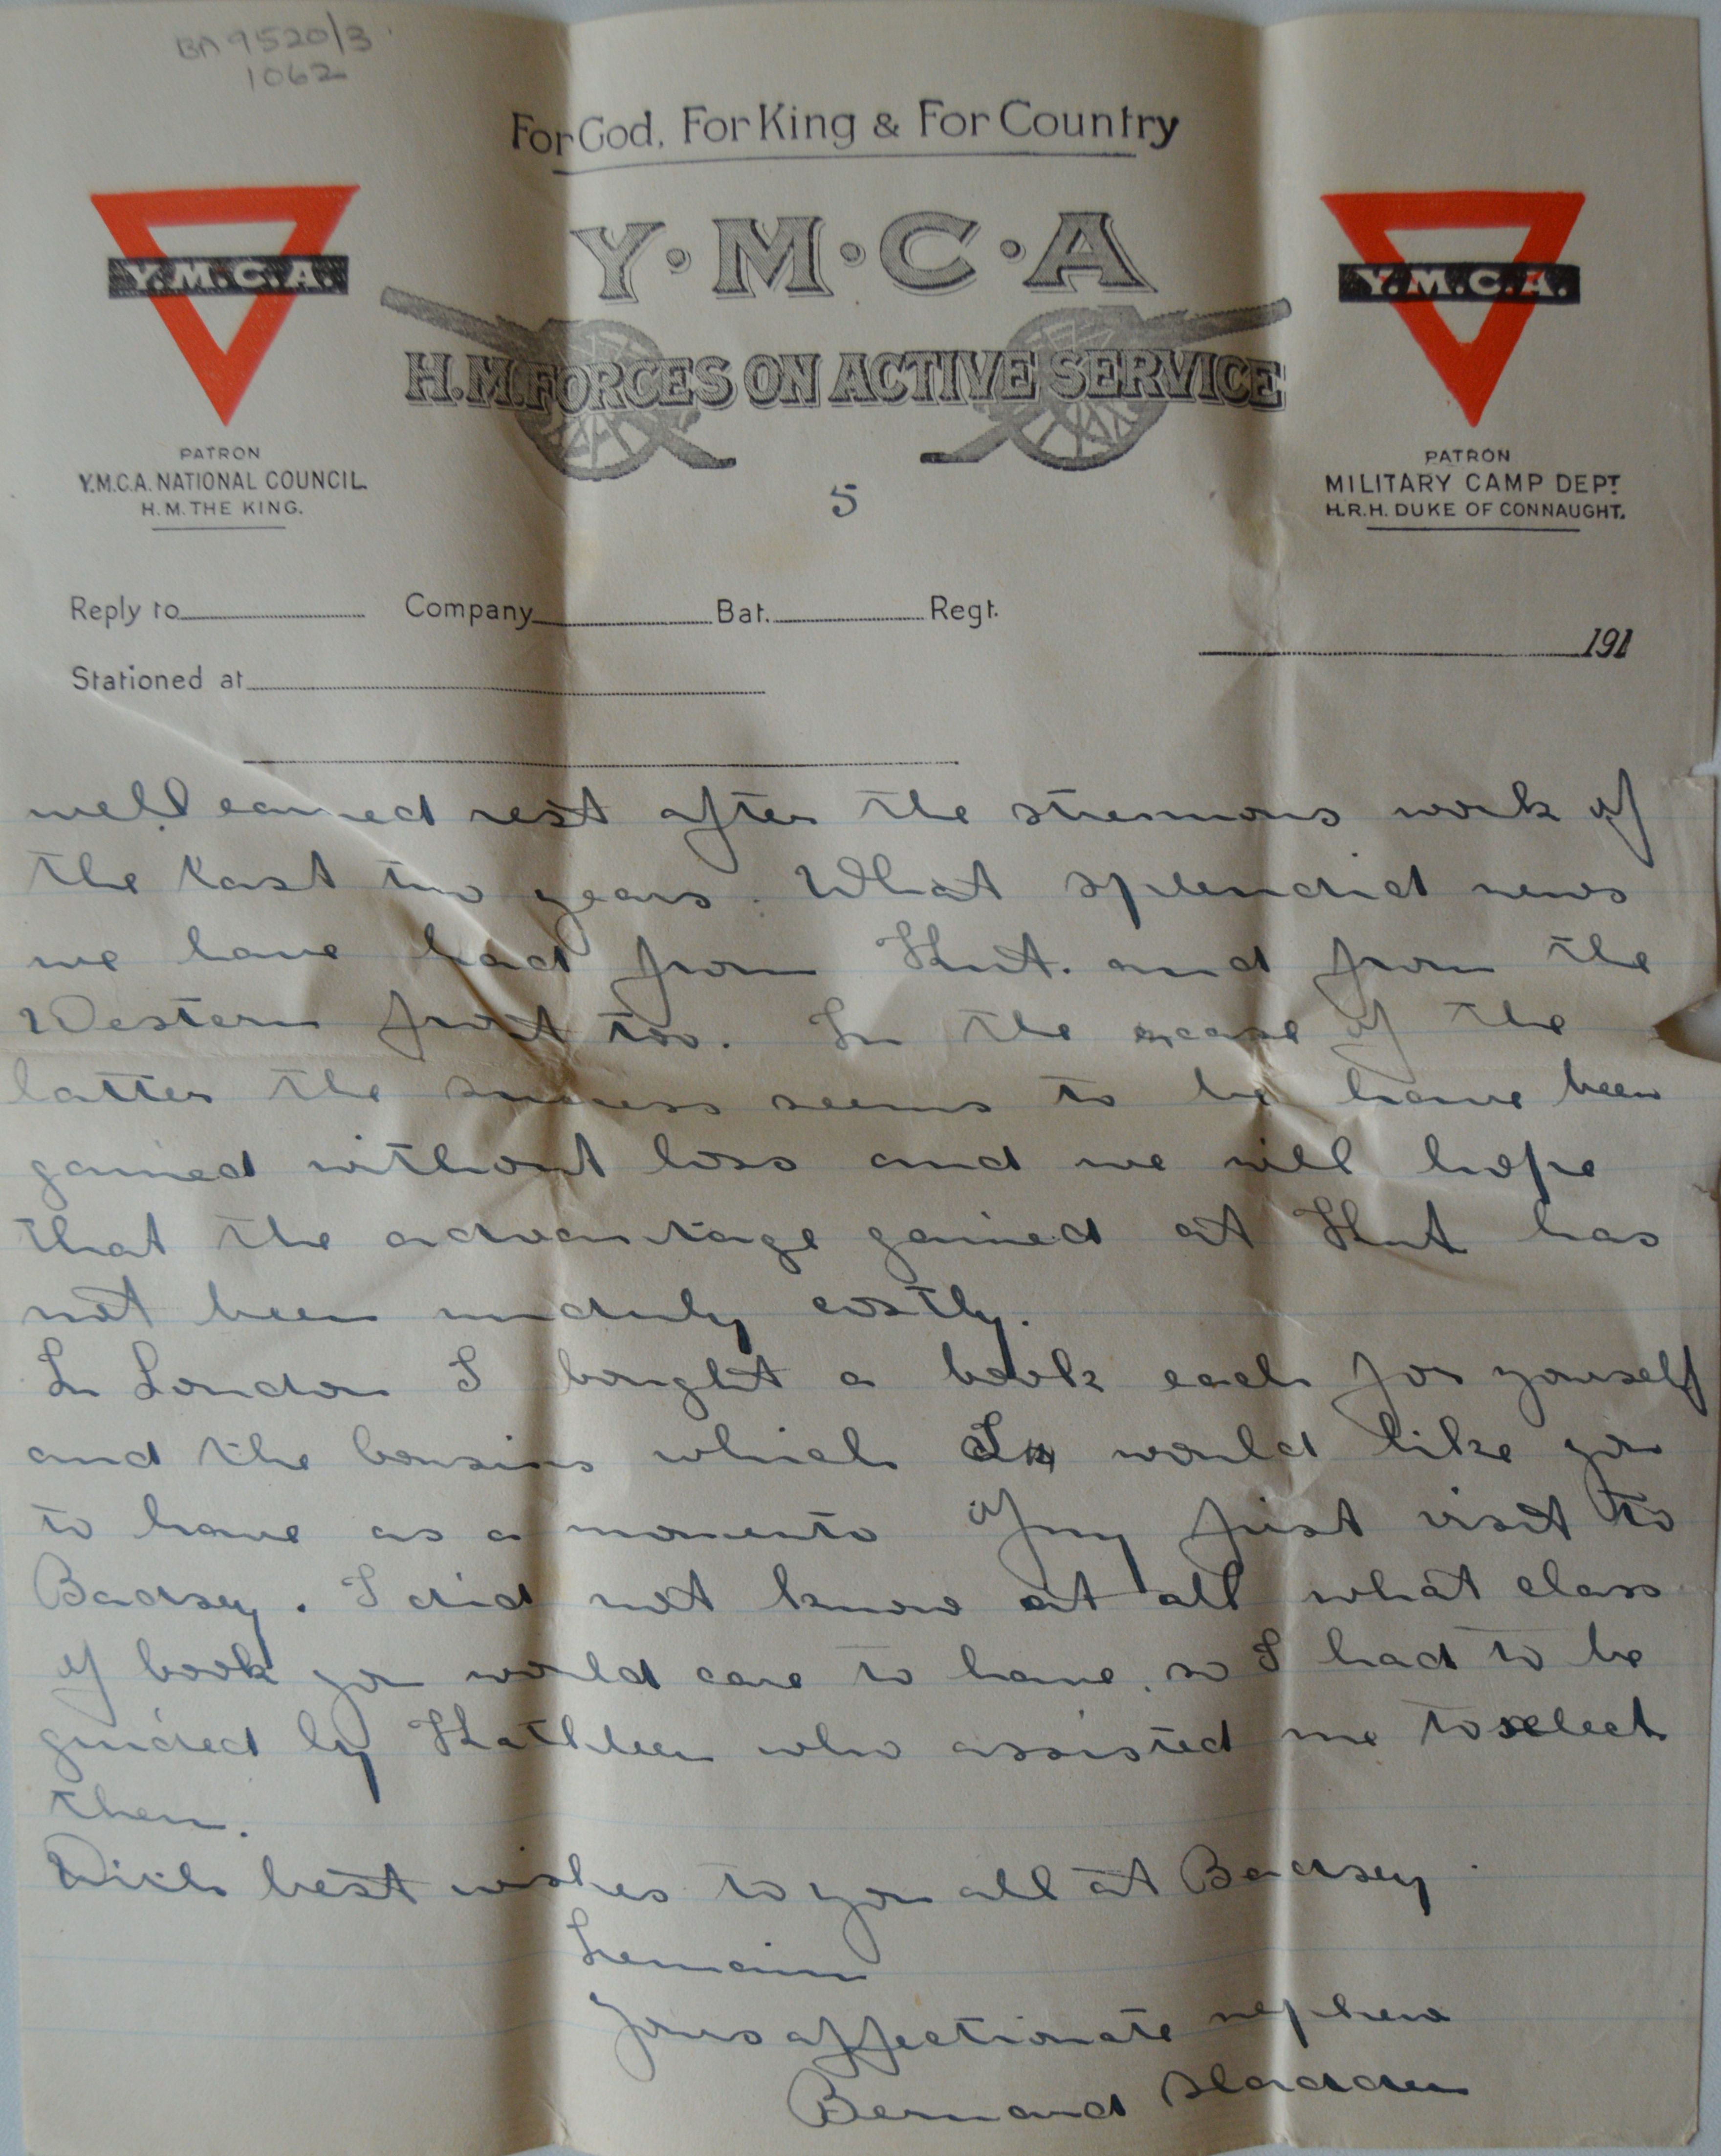 BA 9520/3
1062
For God, For King & For Country
Y·M·C·A
Y.M.C.A.
Y.M.C.A.
H.M. FORCES ON ACTIVE SERVICE
PATRON
Y.M.C.A. NATIONAL COUNCIL
H.M. THE KING.
PATRON
MILITARY CAMP DEPT.
H.R.H. DUKE OF CONNAUGHT.
5
Reply to Company Bat. Regt.
191
Stationed at
well earned rest after the strenuous work of
the last two years. What splendid news
we have had from Kut. and from the
Western front too. In the case of the
latter the success seems to be have been
gained without loss and we will hope
that the advantage gained at Kut has
not been unduly costly.
In London I bought a book each for yourself
and the cousins which I would like you
to have as a momento of my first visit to
Badsey. I did not know at all what class
of book you would care to have, so I had to be
guided by Kathleen who assisted me to select
them.
With best wishes to you all at Badsey.
I remain
Your affectionate nephew
Bernard Sladden